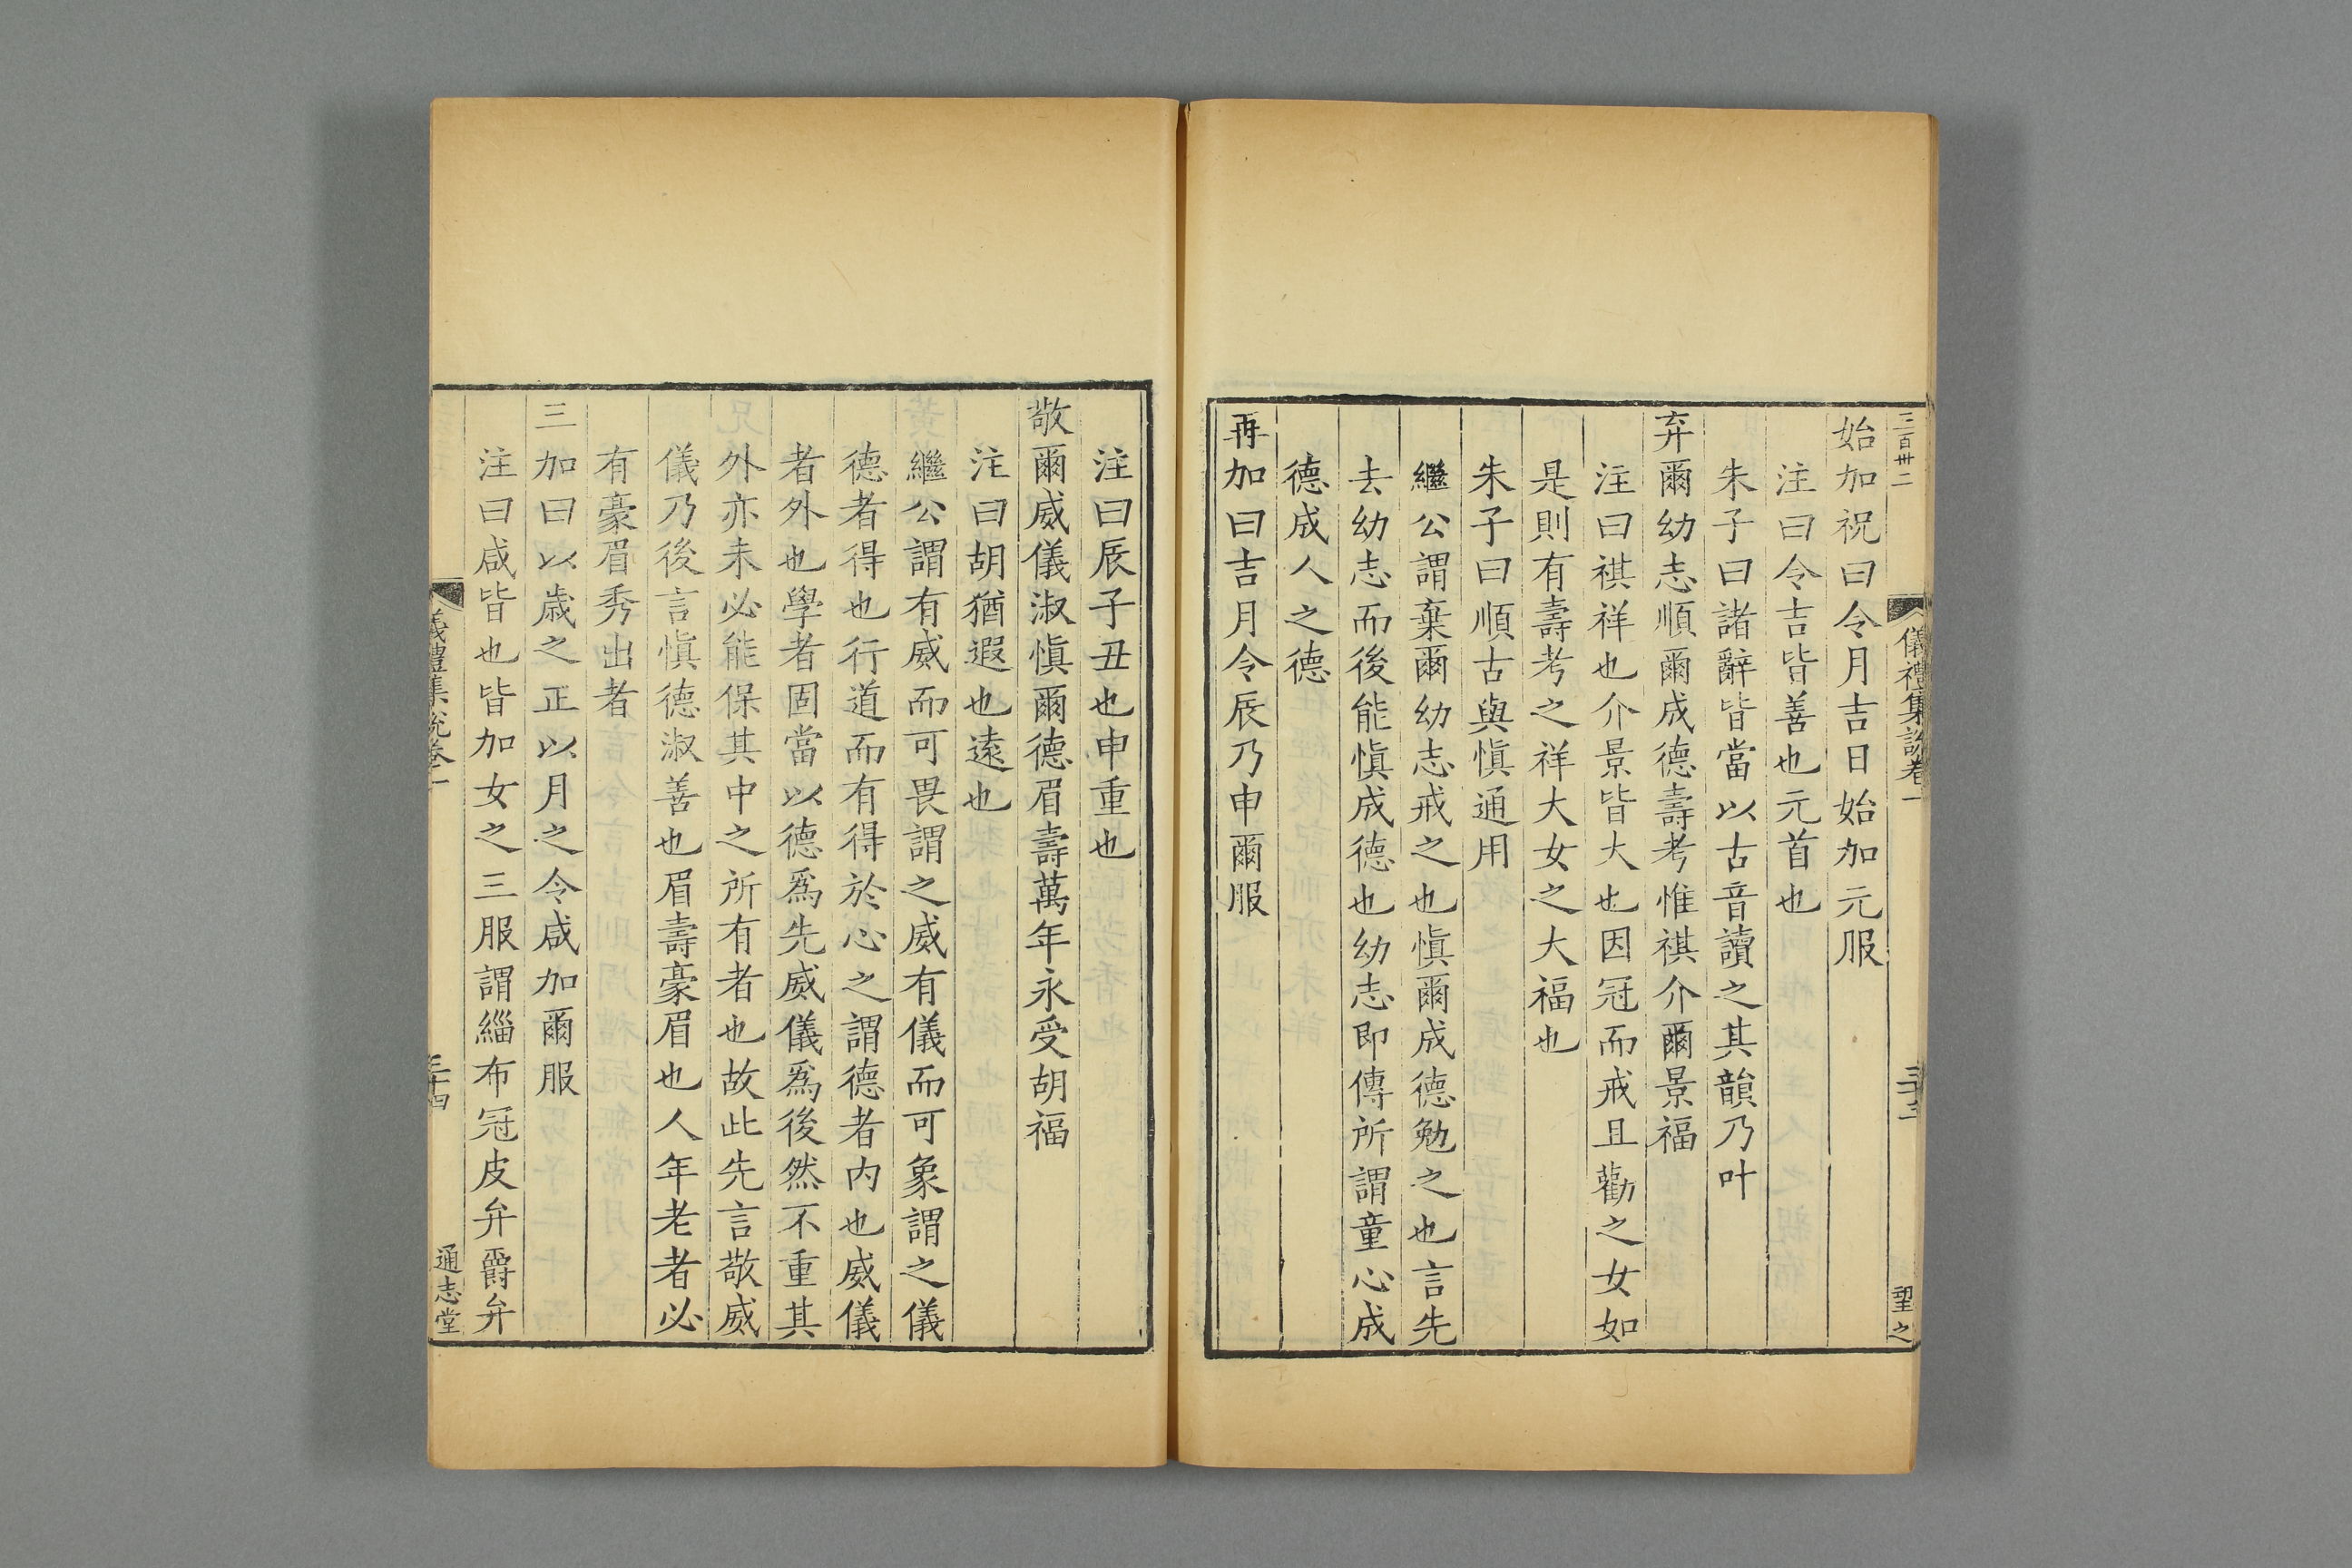 三百卅二
儀禮集說卷一
三十三
始加祝曰令月吉日始加元服
注曰令吉皆善也元首也
朱子曰諸辭皆當以古音讀之其韻乃叶
弃爾幼志順爾成德壽考惟祺介爾景福
注曰祺祥也介景皆大也因冠而戒且勸之女如
是則有壽考之祥大女之大福也
朱子曰順古與愼通用
繼公謂棄爾幼志戒之也愼爾成德勉之也言先
去幼志而後能愼成德也幼志即傳所謂童心成
德成人之德
再加曰吉月令辰乃申爾服
注曰辰子丑也申重也
敬爾威儀淑愼爾德眉壽萬年永受胡福
注曰胡猶遐也遠也
繼公謂有威而可畏謂之威有儀而可象謂之儀
德者得也行道而有得於心之謂德者内也威儀
者外也學者固當以德爲先威儀爲後然不重其
外亦未必能保其中之所有者也故此先言敬威
儀乃後言愼德淑善也眉壽豪眉也人年老者必
有豪眉秀出者
三加曰以歲之正以月之令咸加爾服
注曰咸皆也皆加女之三服謂緇布冠皮弁爵弁
儀禮集說卷一
三十四
通志堂